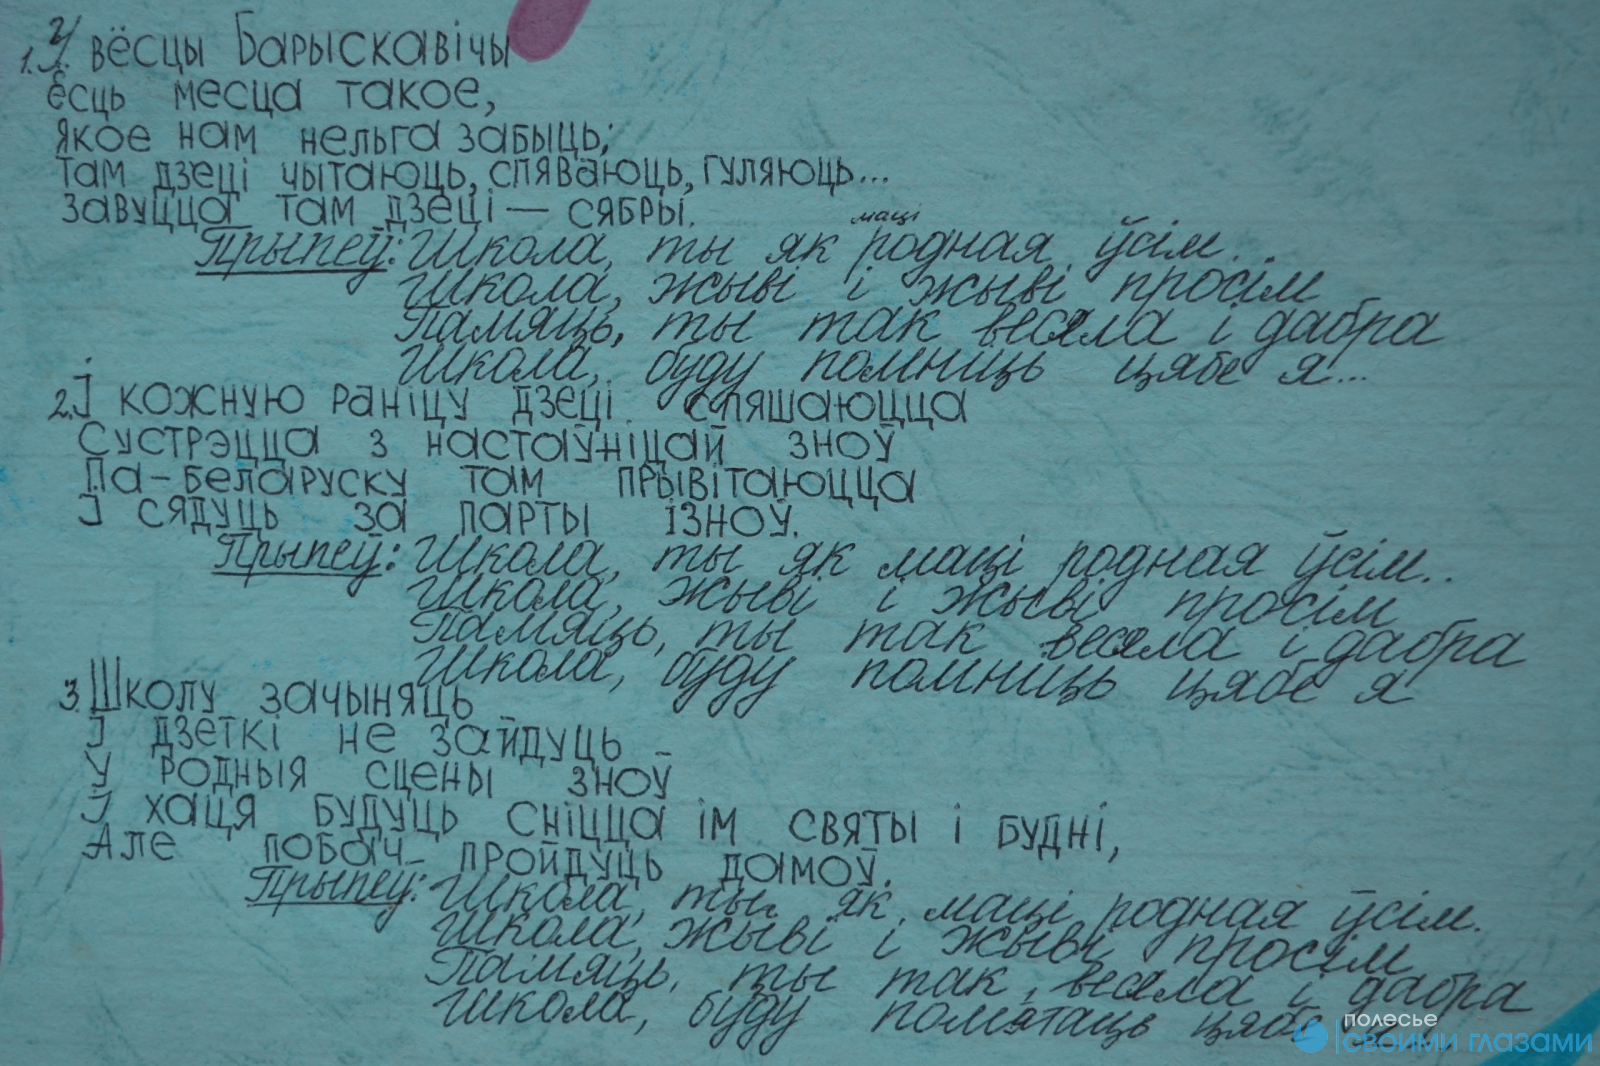 1. У вёсцы Барыскавічы
Ёсць месца такое,
якое нам нельга забыць;
там дзеці чытаюць, спяваюць, гуляюць...
завуцца там дзеці — сябры.
маці
Прыпеў: Школа, ты як родная ўсім..
Школа, жыві і жыві просім
Памяць, ты так весяла і дабра
Школа, буду помниць цябе я...
2. І кожную раніцу дзеці спяшаюцца
Сустрэцца з настаўніцай зноў
Па-беларуску там прывітаюцца
І сядуць за парты ізноў.
Прыпеў: Школа, ты як маці родная ўсім..
Школа, жыві і жыві просім
Памяць, ты так весяла і дабра
Школа, буду помниць цябе я
3. Школу зачыняць
І дзеткі не зайдуць
У родныя сцены зноў
І хаця будуць сніцца ім святы і будні,
Але побач пройдуць дамоў.
Прыпеў: Школа, ты як маці родная ўсім.
Школа, жыві і жыві просім
Памяць, ты так, весяла і дабра
Школа, буду помятаць цябе
полесье
своими глазами